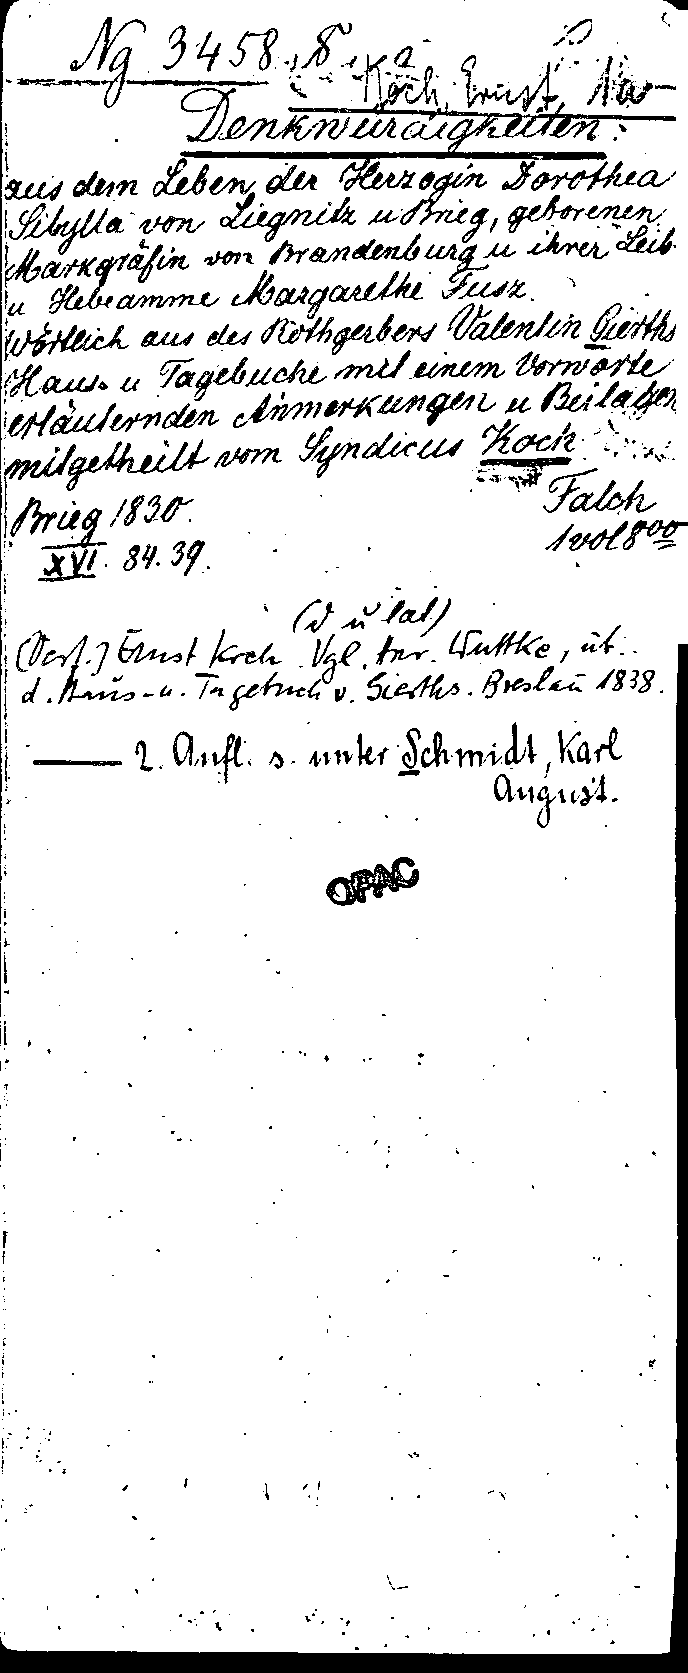 Ng 3458, 8°
Koch, Ernst, 1a
Denkwürdigkeiten:
aus dem Leben der Herzogin Dorothea
Sibylla von Liegnitz u Brieg, geborenen
Markgräfin von Brandenburg u ihrer Leib-
u Hebeamme Margarethe Fusz.
Wörtlich aus des Rothgerbers Valentin Gierths
Haus- u Tagebuche mit einem Vorworte
erläuternden Anmerkungen u Beilagen
mitgetheilt vom Syndicus Koch
Falch
Brieg 1830.
1 vol 8°°
XVI. 84. 39.
(d u lat)
(Verf.) Ernst Koch. Vgl. Wuttke, üb.
d. Haus- u. Tagebuch v. Gierths. Breslau 1838.
—— 2. Aufl. s. unter Schmidt, Karl
August.
OPAC